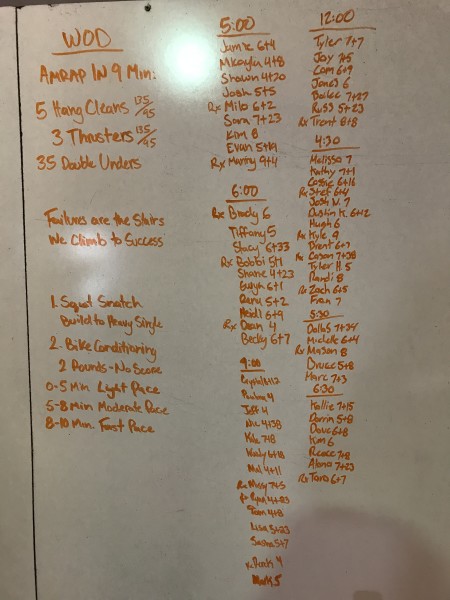 WOD
AMRAP IN 9 Min:
5 Hang Cleans 135/95
3 Thrusters 135/95
35 Double Unders
Failures are the Stairs
We Climb to Success
1. Squat Snatch
Build to Heavy Single
2. Bike Conditioning
2 Rounds - No Score
0-5 Min Light Pace
5-8 Min Moderate Pace
8-10 Min. Fast Pace
5:00
Jamie 6+4
Mikayla 4+8
Shawn 4+20
Josh 5+5
Rx Milo 6+2
Sara 7+23
Kim 8
Evan 5+19
Rx Marty 9+4
6:00
Rx Brady 6
Tiffany 5
Stacy 6+33
Rx Bobbi 5+1
Shane 4+23
6+1
5+2
Heidi 6+9
Rx Dean 4
Becky 6+7
9:00
4
Jeff 4
4+38
7+8
6+18
4+11
Rx Missy 7+5
Rx Ryan
4+8
Lisa 3+23
Sasha 5+7
Rx 4
Mark 5
12:00
Tyler 7+7
Jay 7+5
Cam 6+9
Jones 6
Bailee 7+27
Russ 5+23
Rx Trent 8+8
4:30
Melissa 7
Kathy 7+1
Cassie 6+16
Rx Stef 6+4
Josh N. 7
Dustin K. 6+12
Hugh 6
Rx Kyle 9
Brent 6+7
Rx Cason 7+38
Tyler H. 5
Randi 8
Rx Zach 6+5
Fran 7
5:30
Dallas 7+34
Michelle 6+4
Rx Mason 8
Bruce 5+8
Marc 7+3
6:30
Kallie 7+15
Darrin 5+8
Doug 6+8
Kim 6
Reece 7+8
Alana 7+23
Rx Tara 6+7